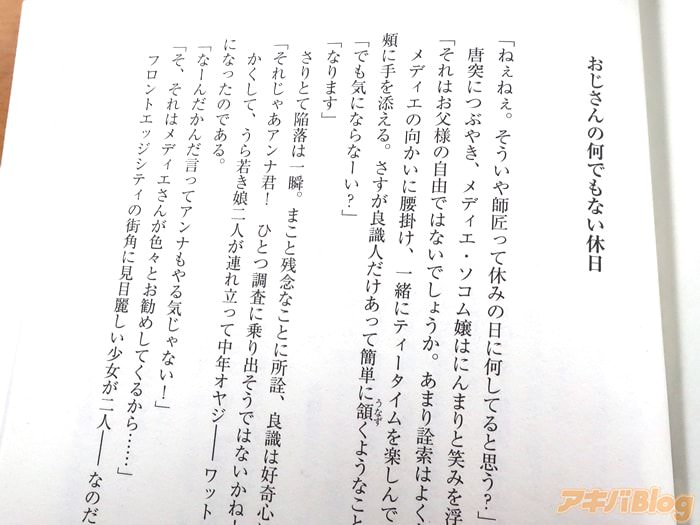 おじさんの何でもない休日
「ねぇねぇ。そういや師匠って休みの日に何してると思う?」
唐突につぶやき、メディエ・ソコム嬢はにんまりと笑みを浮
「それはお父様の自由ではないでしょうか。あまり詮索はよく
メディエの向かいに腰掛け、一緒にティータイムを楽しんで
頬に手を添える。さすが良識人だけあって簡単に頷くようなこと
うなず
「でも気にならなーい?」
「なります」
さりとて陥落は一瞬。まこと残念なことに所詮、良識は好奇心
「それじゃあアンナ君! ひとつ調査に乗り出そうではないかね
かくして、うら若き娘二人が連れ立って中年オヤジ――ワット
になったのである。
「なーんだかんだ言ってアンナもやる気じゃない!」
「そ、それはメディエさんが色々とお勧めしてくるから……」
フロントエッジシティの街角に見目麗しい少女が二人――なのだ
アキバBlog